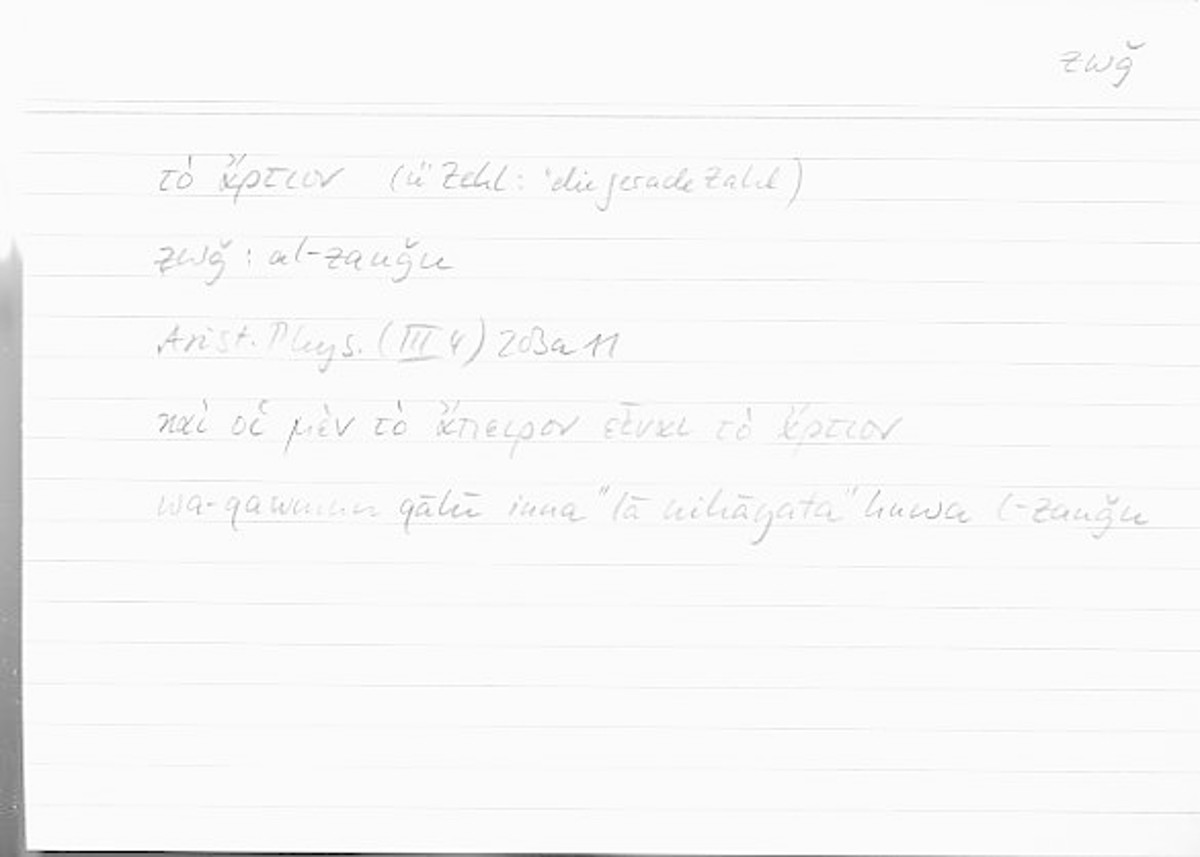 zwǧ
τὸ ἄρτιον (ü Zahl: 'die gerade Zahl)
zwǧ : al-zauǧu
Arist. Phys. (III 4) 203a 11
καὶ οἱ μὲν τὸ ἄπειρον εἶναι τὸ ἄρτιον
wa-qawmun qālū inna "lā nihāyata" huwa l-zauǧu